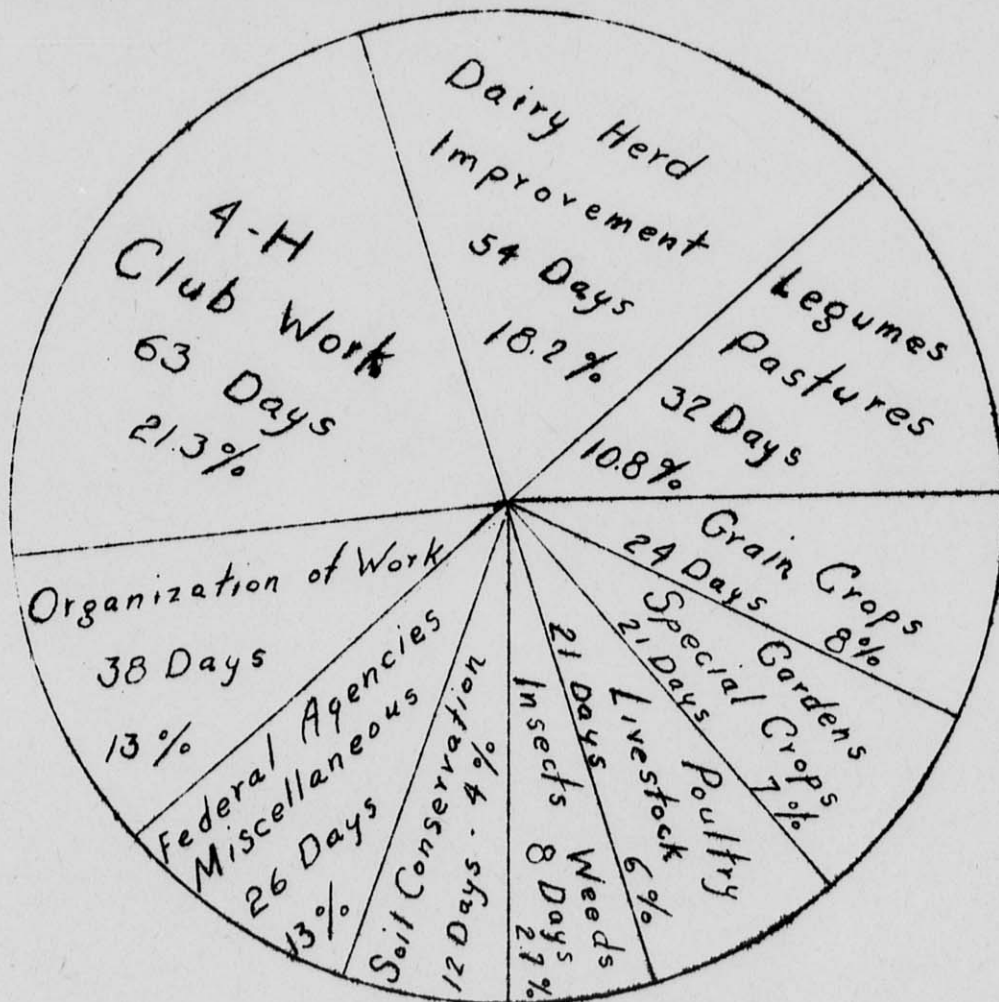 4-H
Club Work
63 Days
21.3%
Dairy Herd
Improvement
54 Days
18.2%
Legumes
Pastures
32 Days
10.8%
Grain Crops
24 Days 8%
Gardens
Special Crops
21 Days 7%
Poultry
Livestock
21 Days 6%
Weeds
Insects 8 Days
2.7%
Soil Conservation
12 Days - 4%
Federal Agencies
Miscellaneous
26 Days
13%
Organization of Work
38 Days
13%